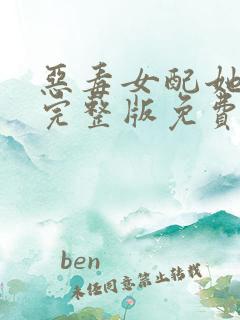 惡毒女配她
完整版免費
ben
未经同意禁止转载